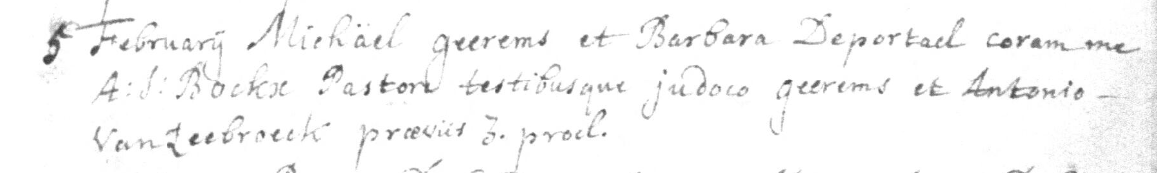 5 Februarij Michäel geerems et Barbara Deportael coram me
A: J: Bockx Pastore testibusque judoco geerems et Antonio -
Van Zeebroeck præviis 3. procl.